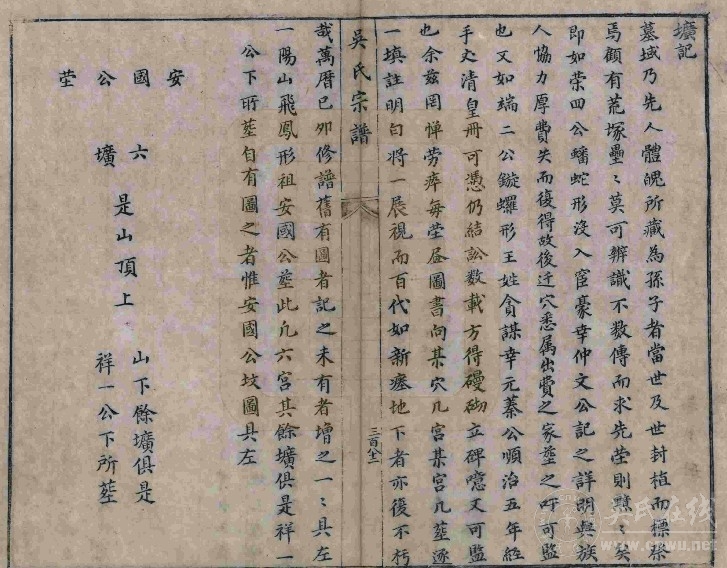 壙記
墓域乃先人體魄所藏為孫子者當世及世封植而標
焉顧有荒塚壘〻莫可辨識不数傳而求先塋則難〻矣
即如榮四公蟠蛇形沒入宦豪幸仲文公記之詳明與族
人協力厚費矣而復得故後迁穴悉属出費之家塟之可監
也又如端二公鏇螺形王姓貪謀幸元蓁公順治五年經
手丈清皇冊可憑仍結訟数載方得磉砌立碑噫又可監
也余兹罔憚劳瘁每塋昼圖書向某穴几宮某宮几塟逐
一填註明白将一展視而百代如新瘞地下者亦復不朽
吳氏宗譜
三百八十二
哉萬曆已夘修譜舊有圖者記之未有者增之一〻具左
一陽山飛鳳形祖安國公塟此凢六宮其餘壙俱是祥一
公下所塟自有圖之者惟安國公坟圖具左
安國公塋
六壙
是山頂上
山下餘壙俱是
祥一公下所塟
吴氏在线
www.cnwu.net